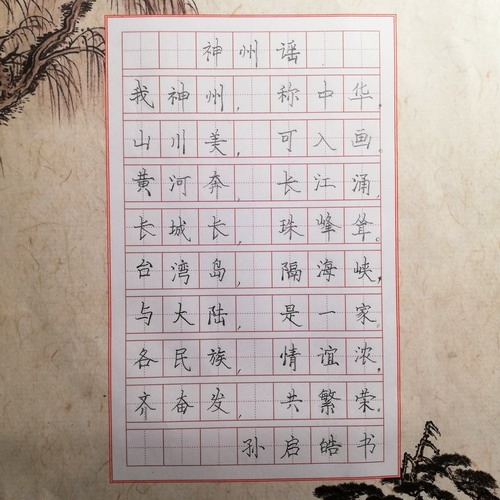 神州谣
我神州，称中华。
山川美，可入画。
黄河奔，长江涌，
长城长，珠峰耸。
台湾岛，隔海峡，
与大陆，是一家。
各民族，情谊浓，
齐奋发，共繁荣。
孙启皓书